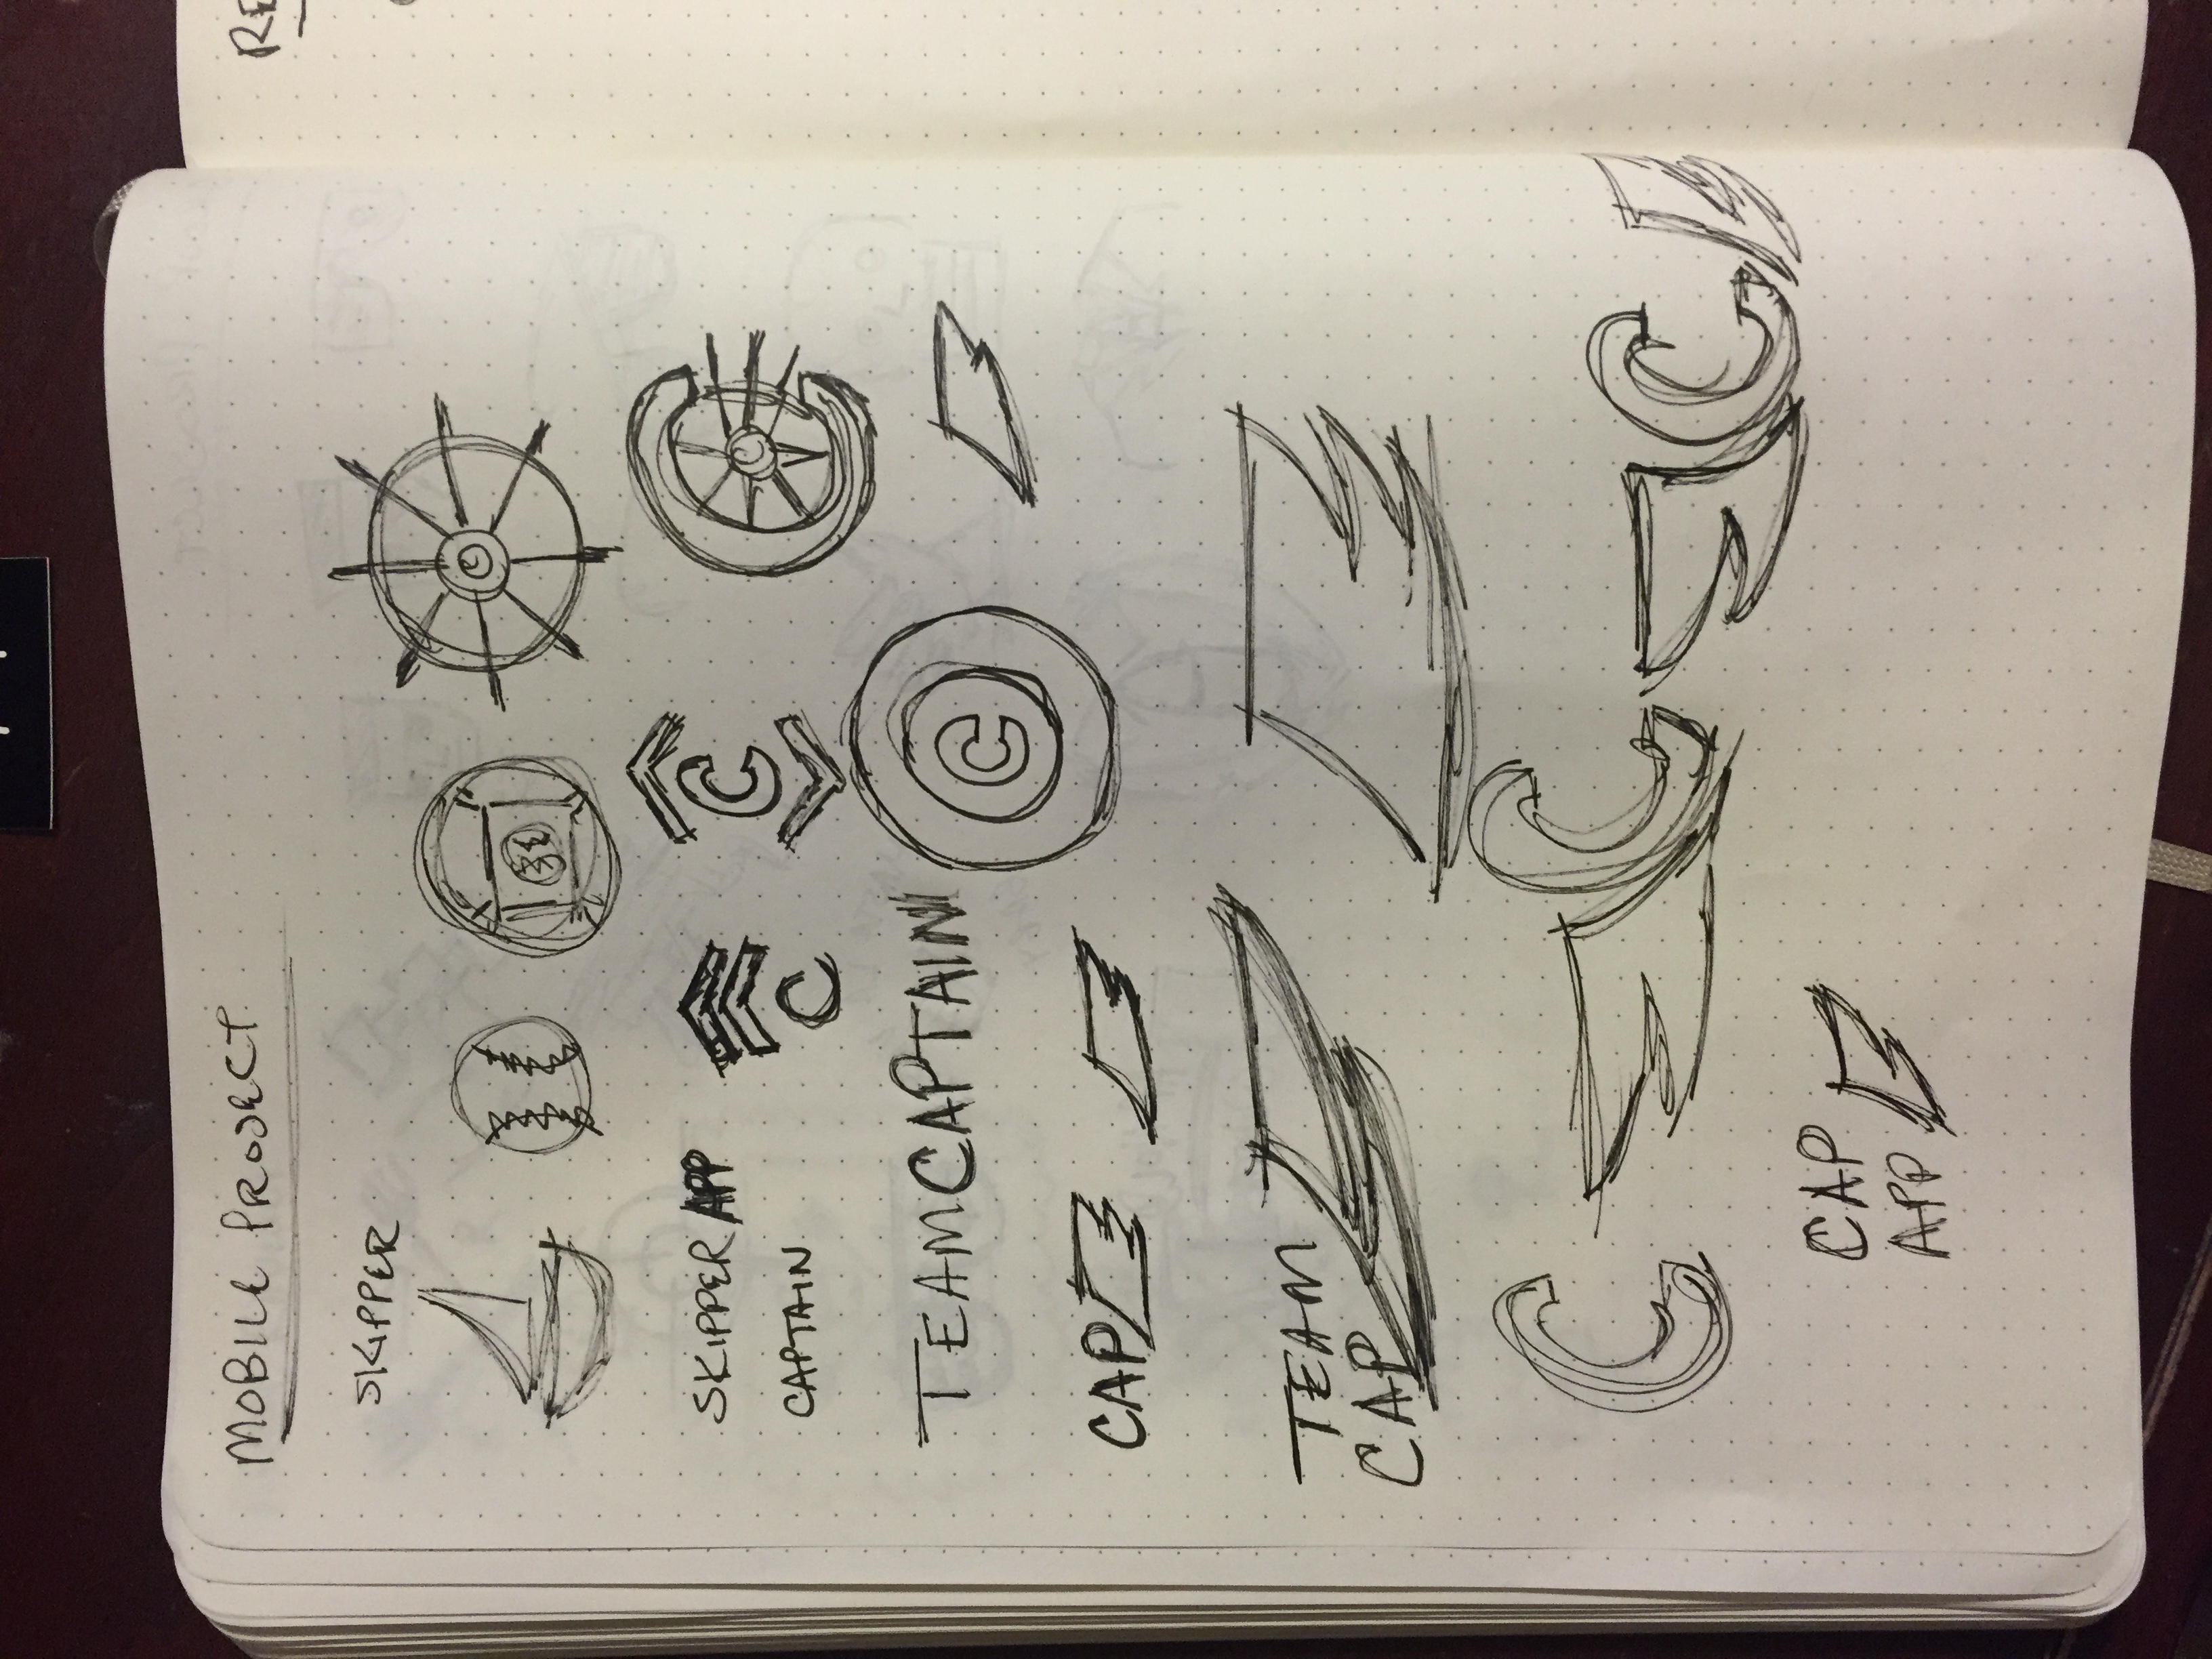 MOBILE PROJECT
RE
SKIPPER
SKIPPER APP
C
C
CAPTAIN
C
TEAMCAPTAIN
C
CAP
TEAM
CAP
C
C
C
CAP
APP